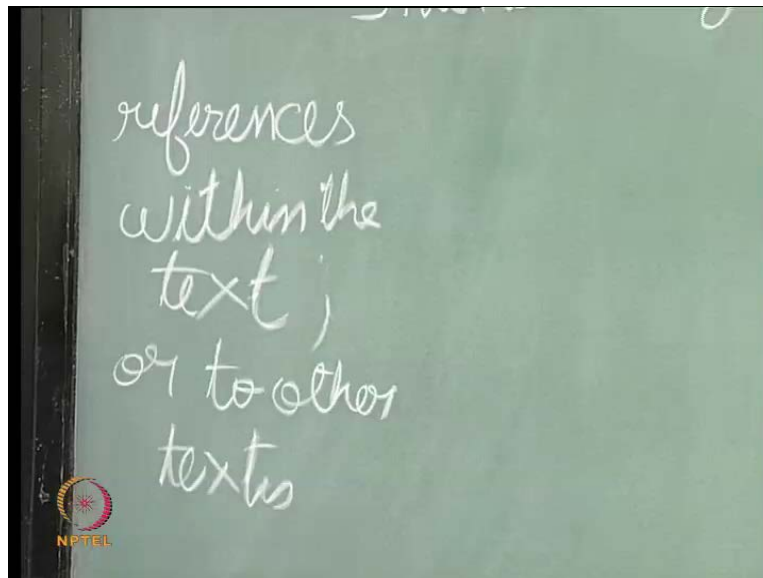 references
within the
text ;
or to other
texts
NPTEL